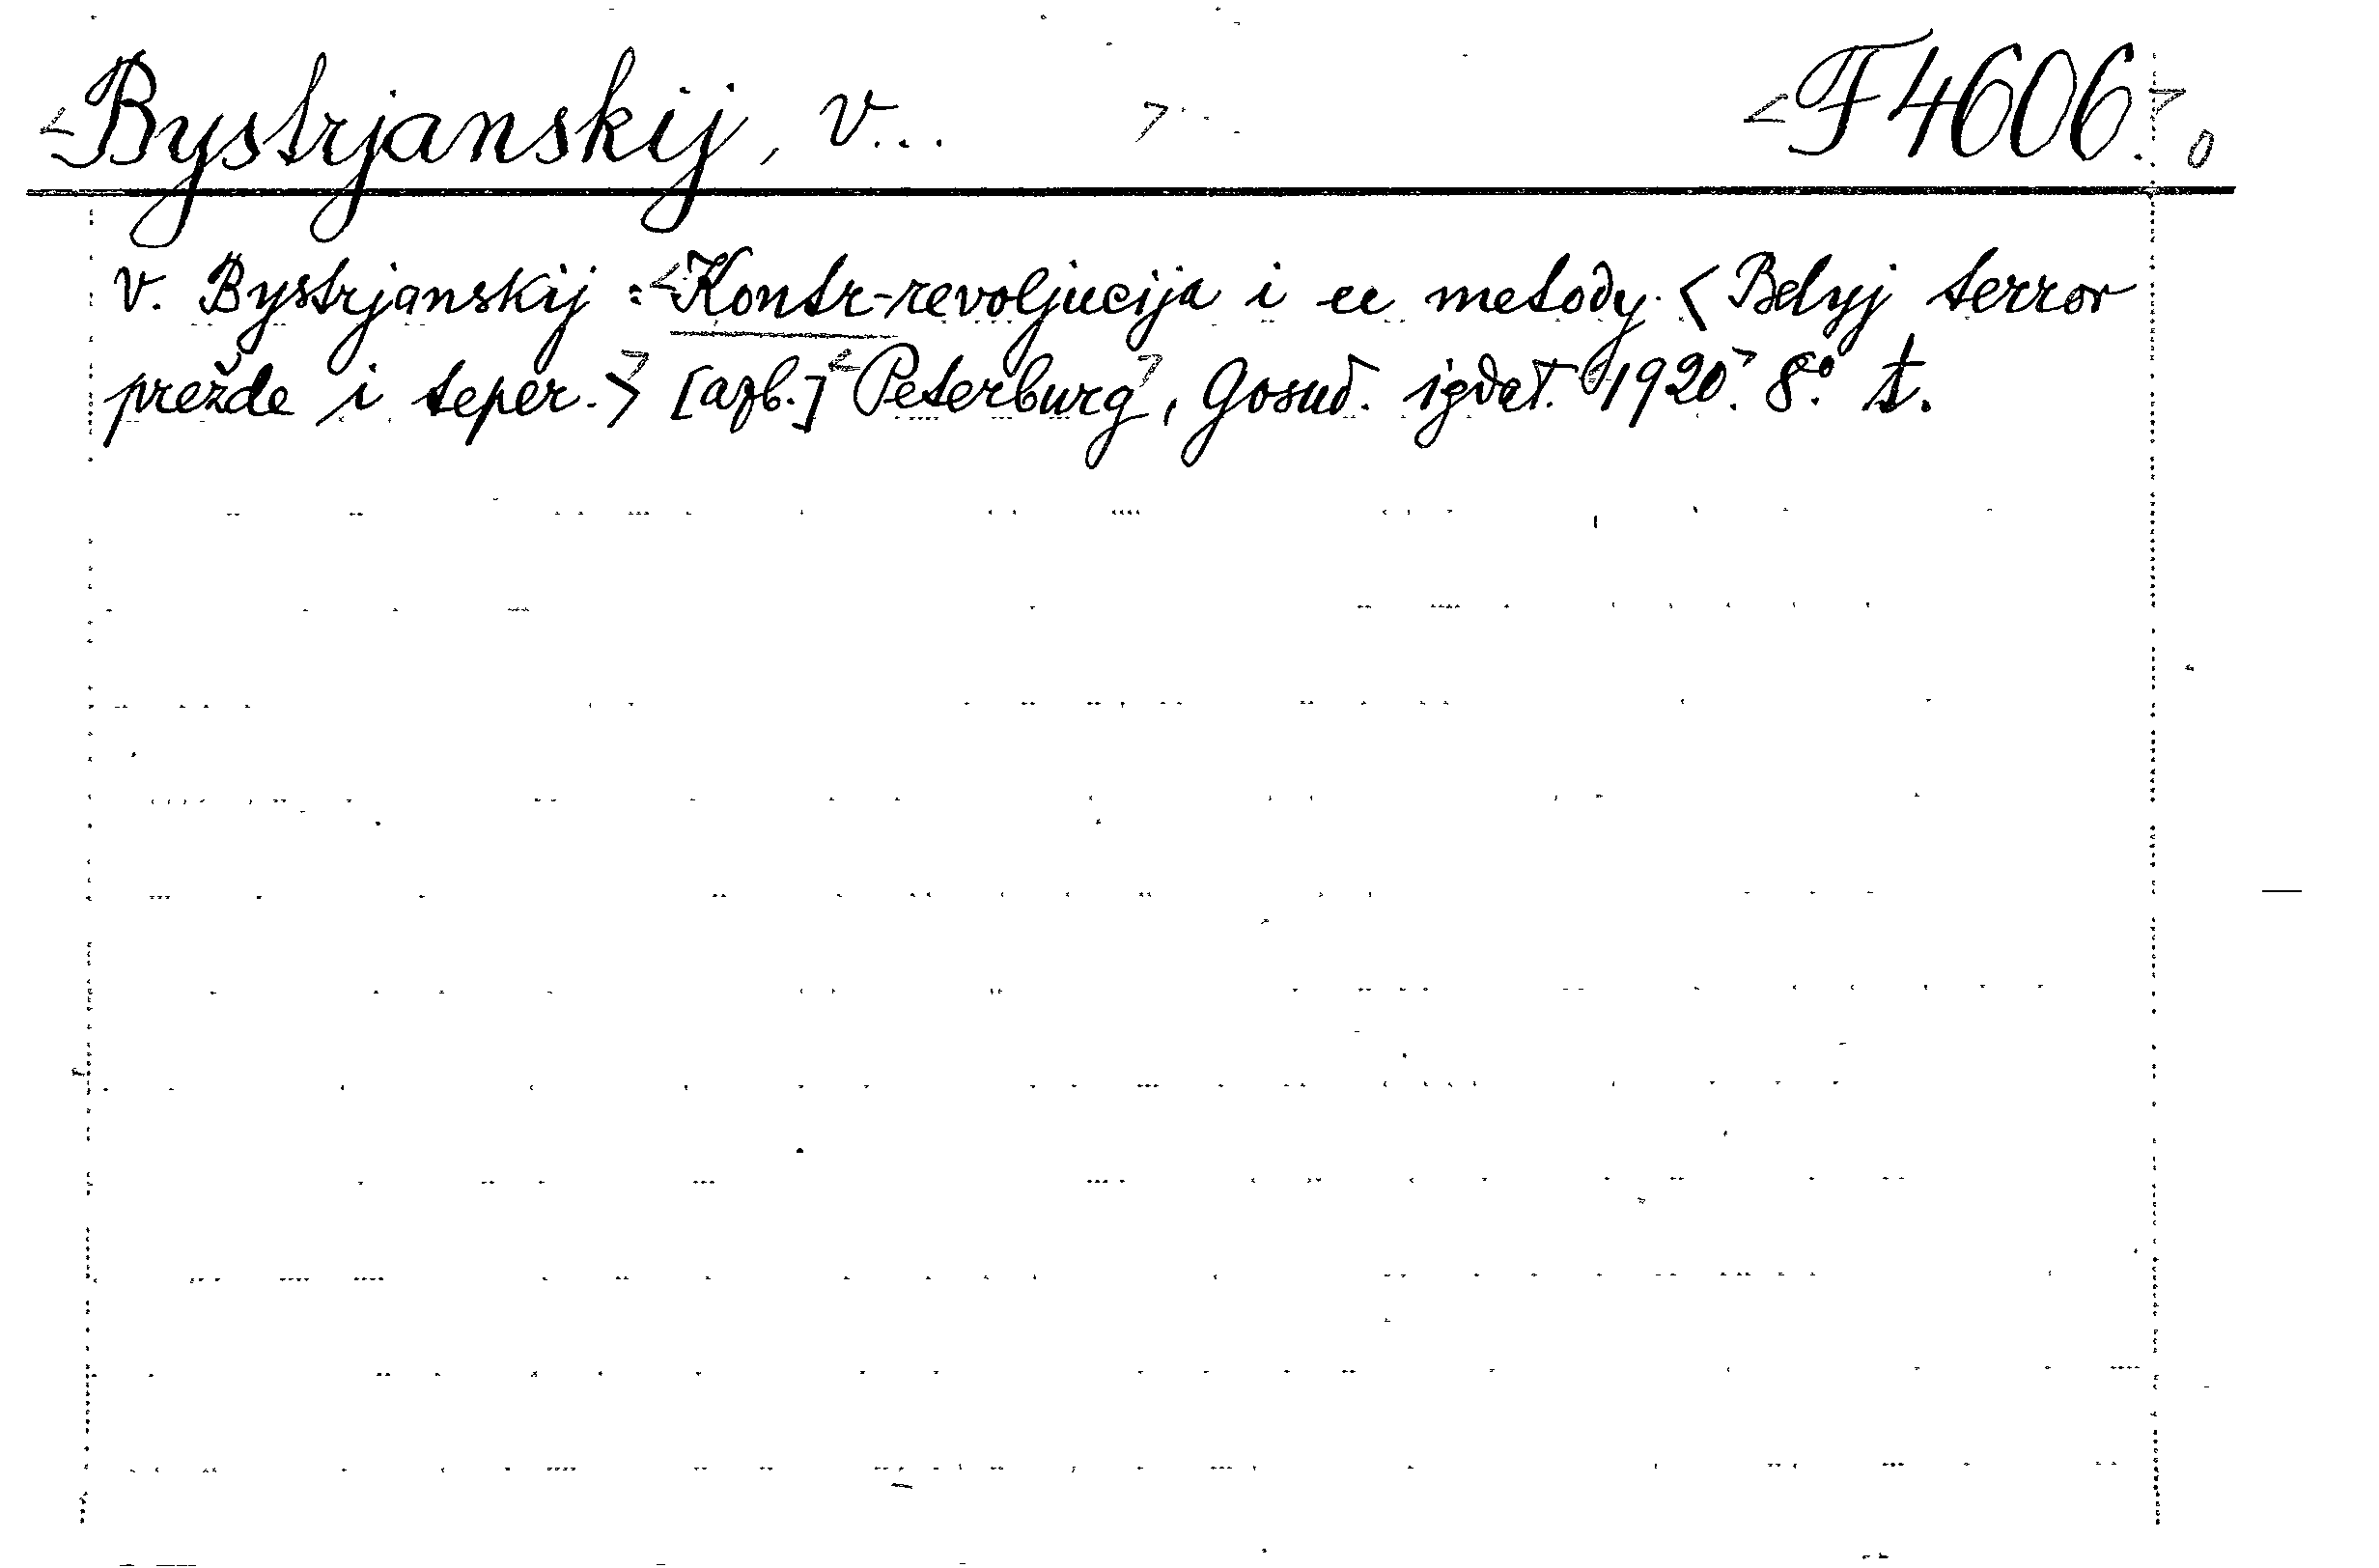 <Bystrjanskij, V... > <F 4606.> 0
V. Bystrjanskij : <Kontr-revoljucija i ee metody. < Belyj terror
prežde i teper.> > [azb.] <Peterburg>, Gosud. izdat. <1920>. 8.° t.